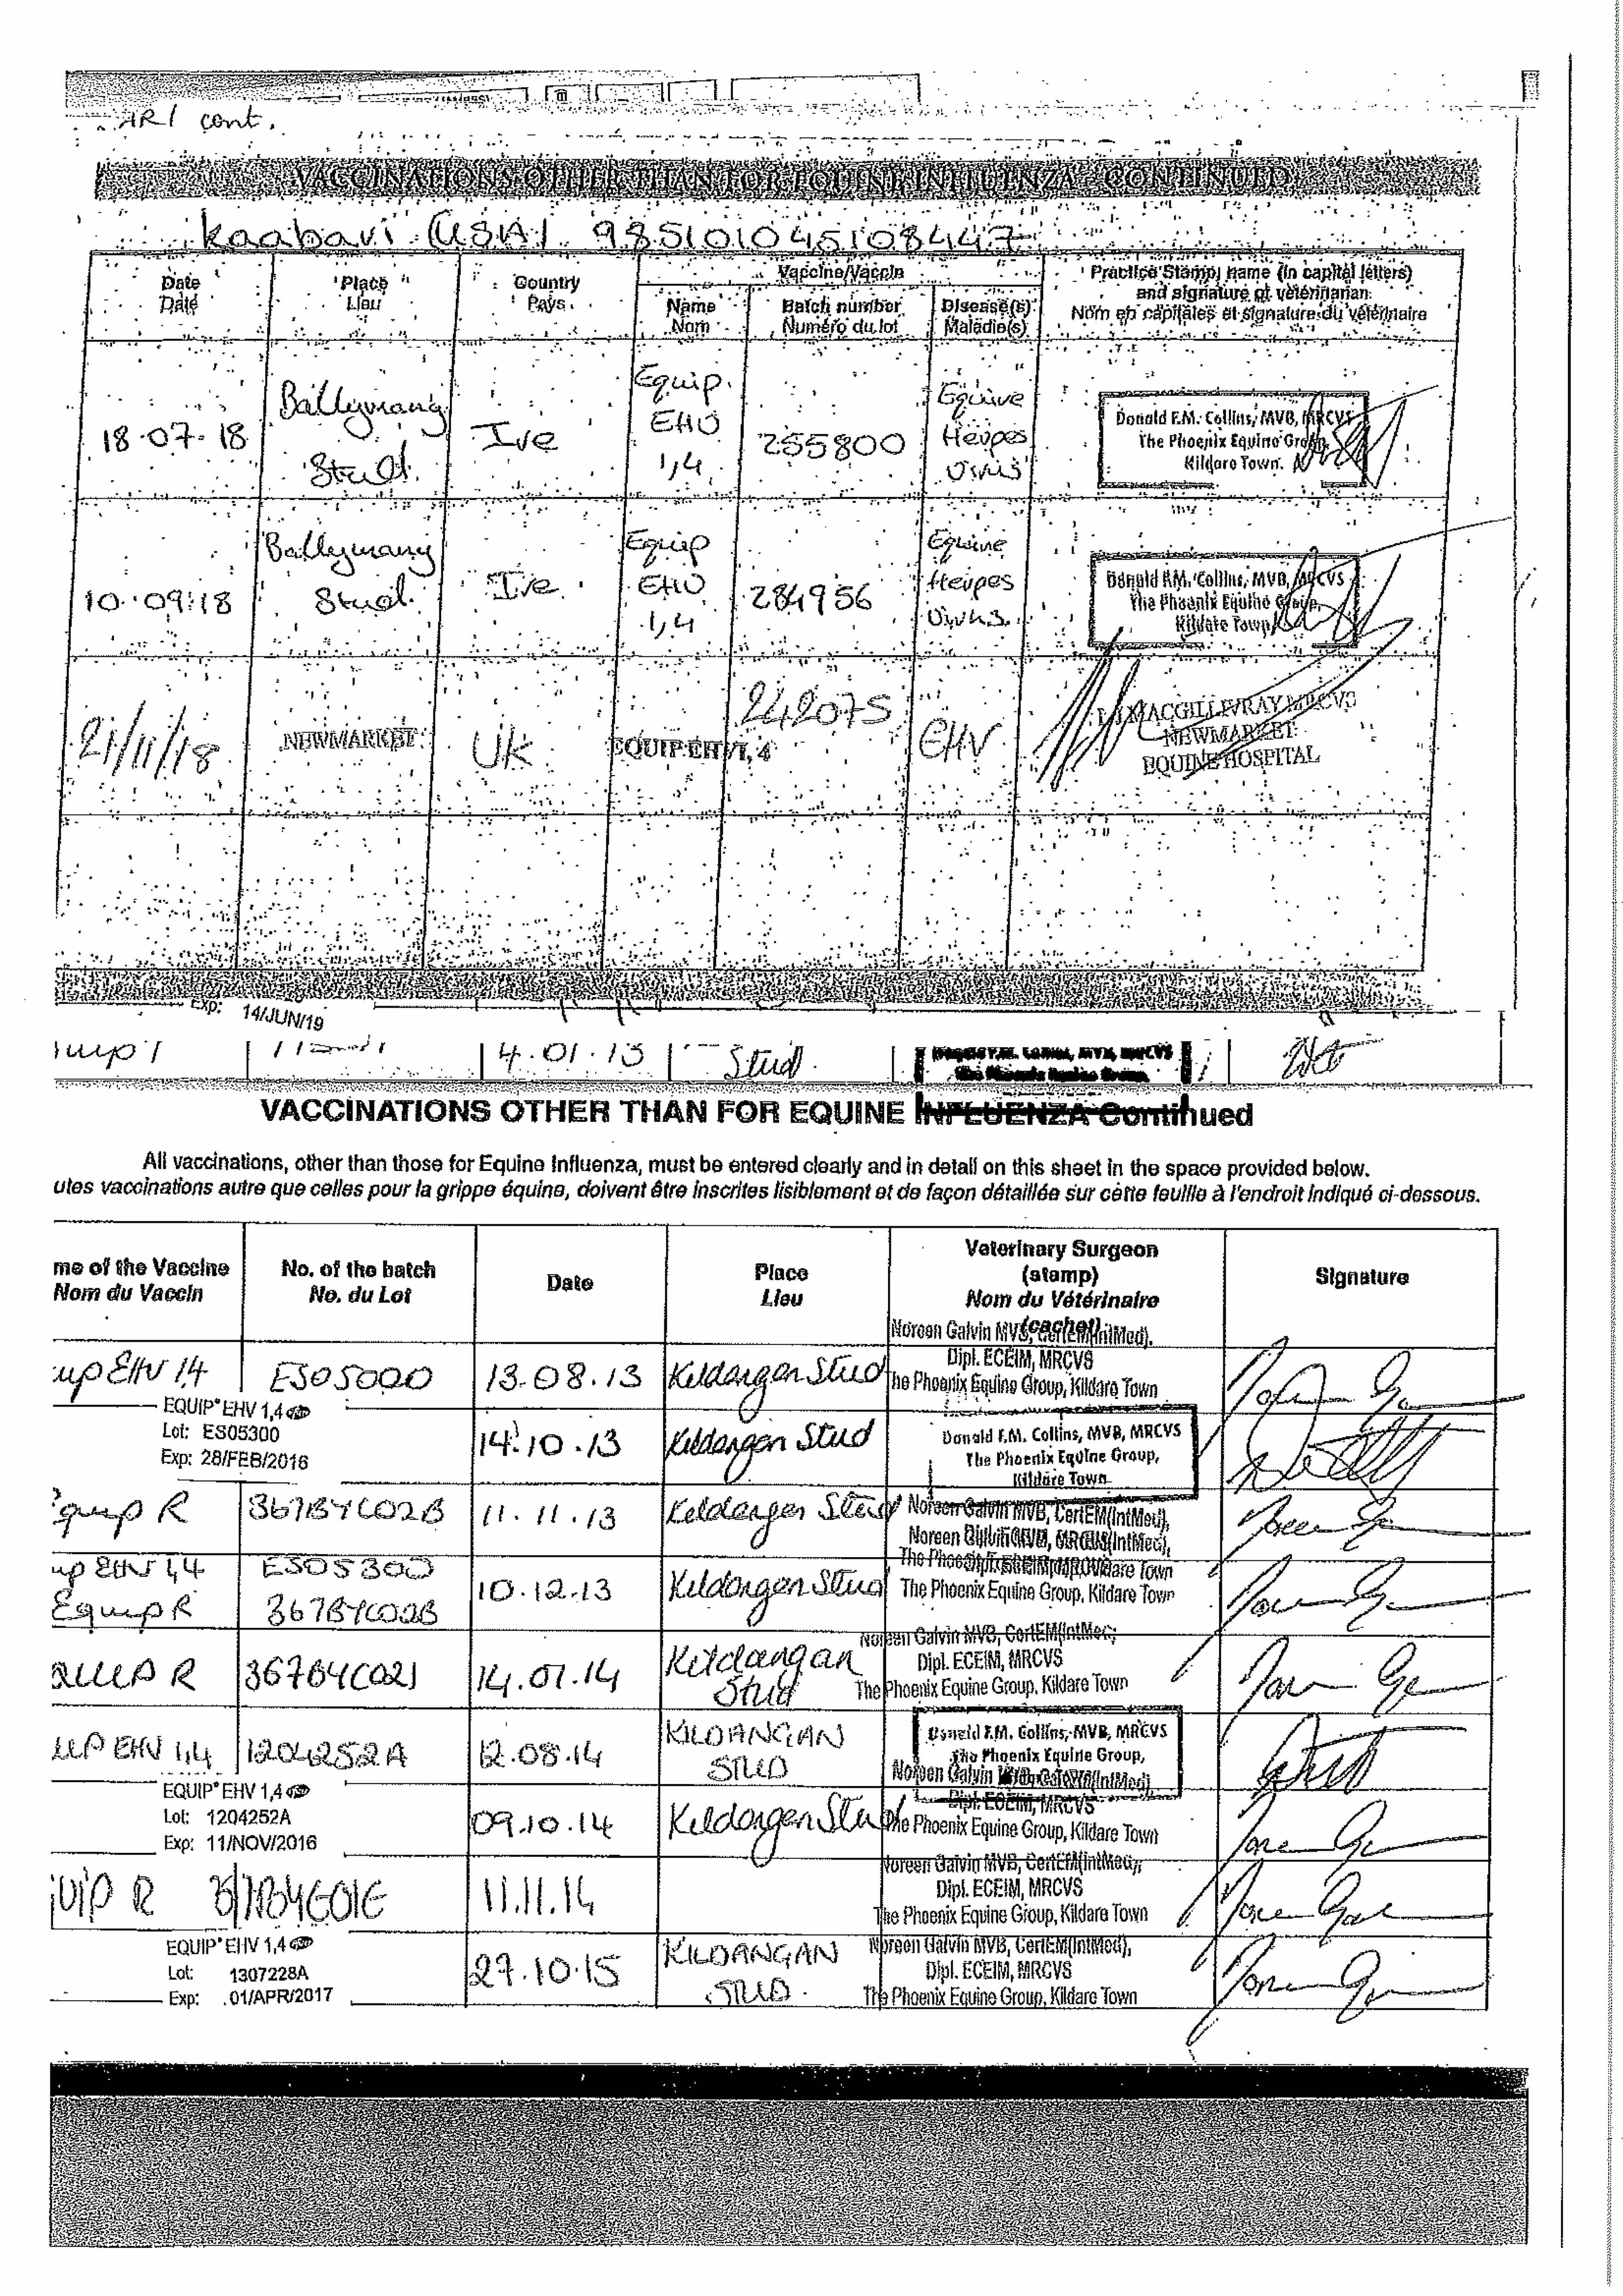 AR1 cont.
VACCINATIONS OTHER THAN FOR EQUINE INFLUENZA - CONTINUED
Kaabari (USA) 985101045108447
Date Place Country Vaccine/Vaccin Practice Stamp, name (in capital letters)
Date Lieu Pays and signature of veterinarian
Name Batch number Disease(s) Nom en capitales et signature du vétérinaire
Nom Numéro du lot Maladie(s)
18.07.18 Ballymany Stud. Ire Equip EHV 1,4 255800 Equine Herpes Virus Donald F.M. Collins, MVB, MRCVS
The Phoenix Equine Group,
Kildare Town.
10.09.18 Ballymany Stud. Ire Equip EHV 1,4 284956 Equine Herpes Virus Donald F.M. Collins, MVB, MRCVS
The Phoenix Equine Group,
Kildare Town
21/11/18 NEWMARKET UK EQUIP EHV1, 4 242075 EHV MACGILLIVRAY MRCVS
NEWMARKET
EQUINE HOSPITAL
Exp: 14/JUN/19
14.01.13 Stud.
VACCINATIONS OTHER THAN FOR EQUINE INFLUENZA Continued
All vaccinations, other than those for Equine Influenza, must be entered clearly and in detail on this sheet in the space provided below.
utes vaccinations autre que celles pour la grippe équine, doivent être inscrites lisiblement et de façon détaillée sur cette feuille à l'endroit indiqué ci-dessous.
me of the Vaccine No. of the batch Date Place Veterinary Surgeon (stamp) Signature
Nom du Vaccin No. du Lot Lieu Nom du Vétérinaire (cachet)
uip EHV 1,4 ES05000 13.08.13 Kildangan Stud Noreen Galvin MVB, CertEM(IntMed),
Dipl. ECEIM, MRCVS
The Phoenix Equine Group, Kildare Town
EQUIP EHV 1,4
Lot: ES05300 14.10.13 Kildangan Stud Donald F.M. Collins, MVB, MRCVS
Exp: 28/FEB/2016 The Phoenix Equine Group,
Kildare Town
quip R 367B4C02B 11.11.13 Kildangan Stud Noreen Galvin MVB, CertEM(IntMed),
up EHV 1,4 ES05300 10.12.13 Kildangan Stud Noreen Galvin MVB, CertEM(IntMed),
Equip R 367B4C02B The Phoenix Equine Group, Kildare Town
quip R 367B4C021 14.01.14 Kildangan Stud Noreen Galvin MVB, CertEM(IntMed),
Dipl. ECEIM, MRCVS
The Phoenix Equine Group, Kildare Town
UIP EHV 1,4 1204252A 12.08.14 KILDANGAN STUD Donald F.M. Collins, MVB, MRCVS
The Phoenix Equine Group,
EQUIP EHV 1,4 Noreen Galvin MVB, CertEM(IntMed),
Lot: 1204252A 09.10.14 Kildangan Stud Dipl. ECEIM, MRCVS
Exp: 11/NOV/2016 The Phoenix Equine Group, Kildare Town
UIP R 11.11.14 Noreen Galvin MVB, CertEM(IntMed),
Dipl. ECEIM, MRCVS
The Phoenix Equine Group, Kildare Town
EQUIP EHV 1,4 Noreen Galvin MVB, CertEM(IntMed),
Lot: 1307228A 27.10.15 KILDANGAN STUD. Dipl. ECEIM, MRCVS
Exp: 01/APR/2017 The Phoenix Equine Group, Kildare Town